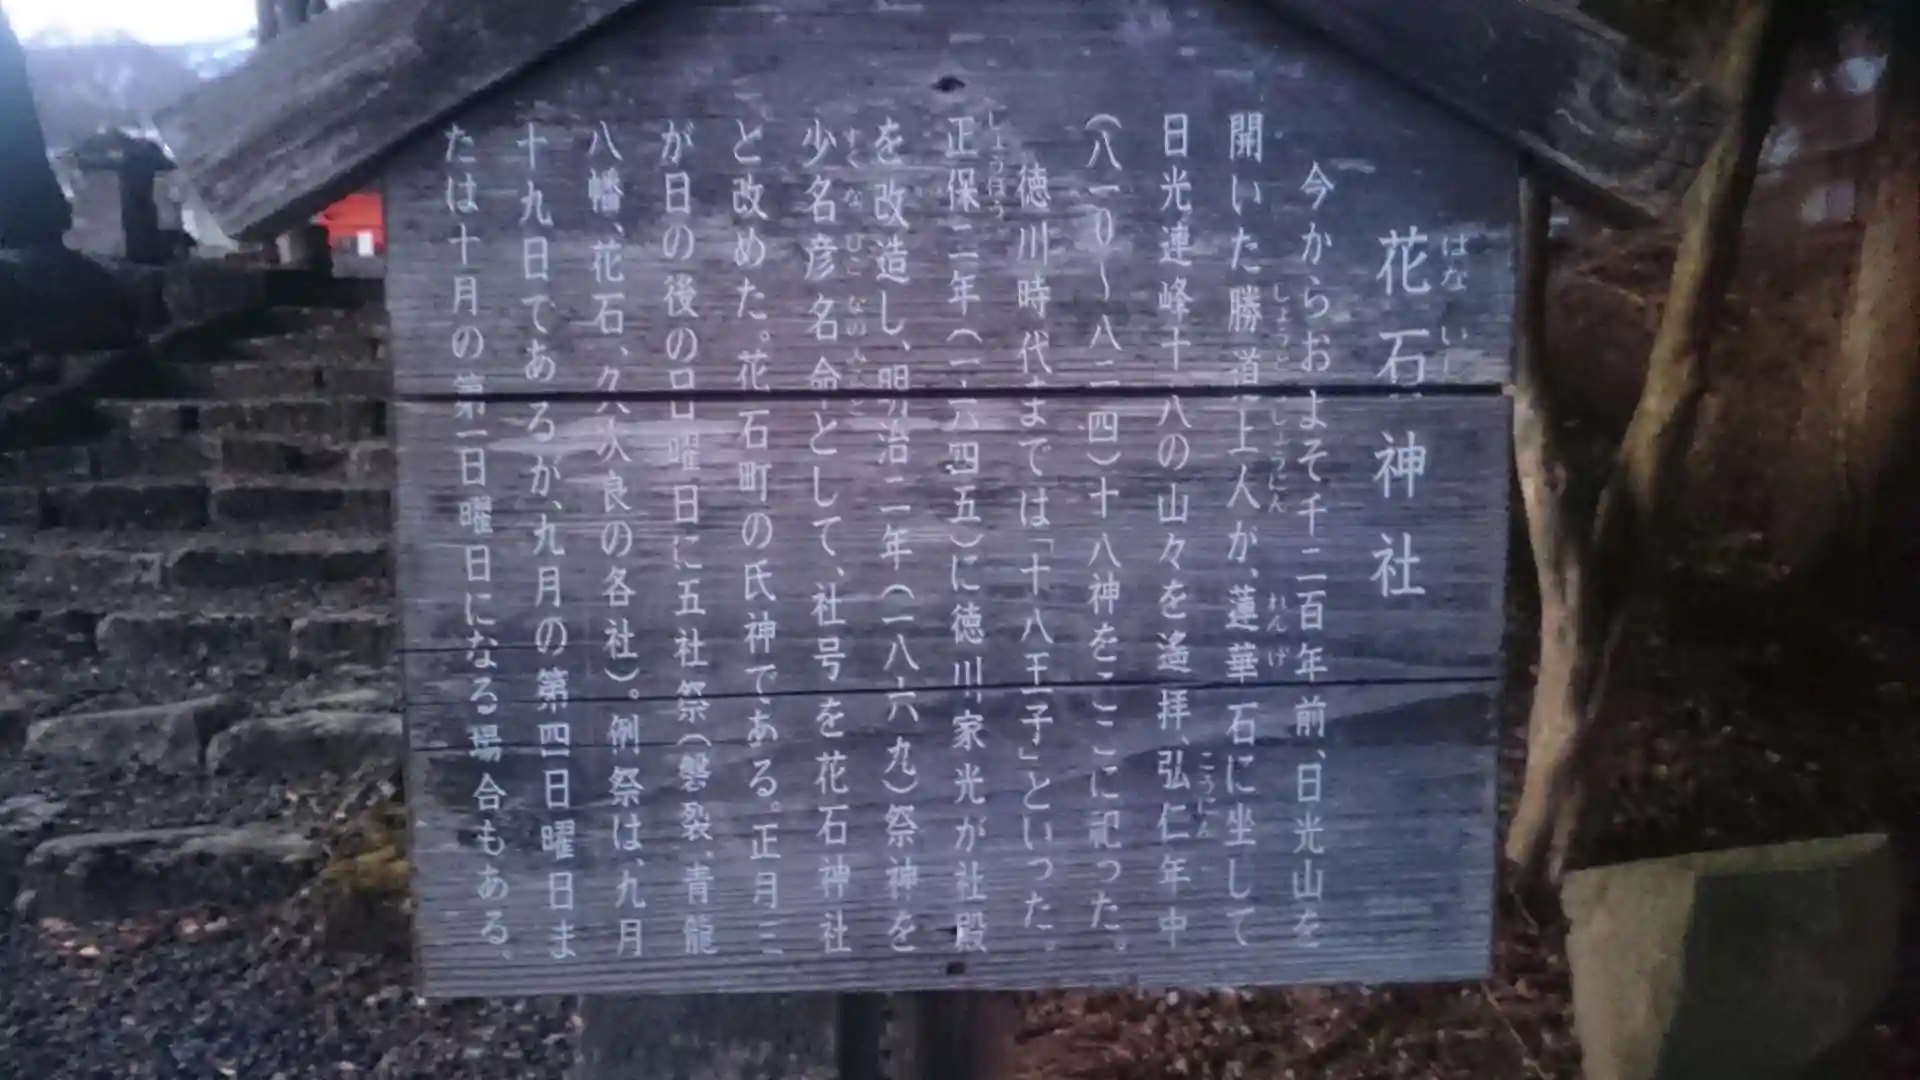 花石神社
はないし
今からおよそ千二百年前、日光山を
開いた勝道上人が、蓮華石に坐して
しょうどうしょうにん れんげ
日光連峰十八の山々を遙拝、弘仁年中
こうにん
(八一〇〜八二四)十八神をここに祀った。
徳川時代までは「十八王子」といった。
正保二年(一六四五)に徳川家光が社殿
しょうほう
を改造し、明治二年(一八六九)祭神を
少名彦名命として、社号を花石神社
すくなひこなのみこと
と改めた。花石町の氏神である。正月三
が日の後の日曜日に五社祭(磐裂、青龍
八幡、花石、久次良の各社)。例祭は、九月
十九日であるが、九月の第四日曜日ま
たは十月の第一日曜日になる場合もある。